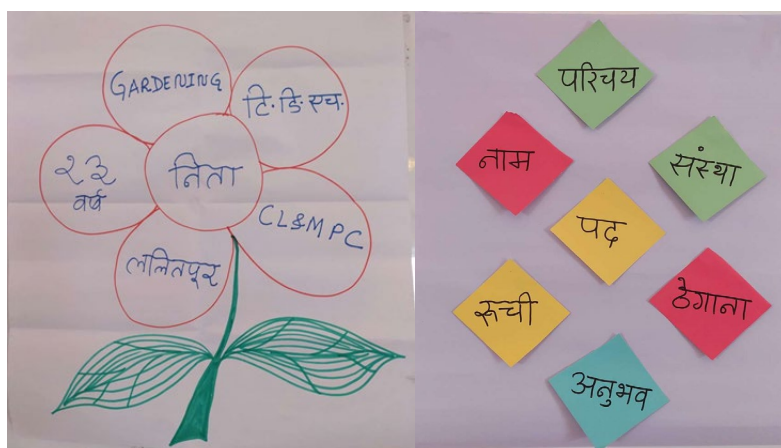 GARDENING
टि. डि. एच.
२३
वर्ष
निता
CL&MPC
ललितपूर
परिचय
नाम
संस्था
पद
रूची
ठेगाना
अनुभव